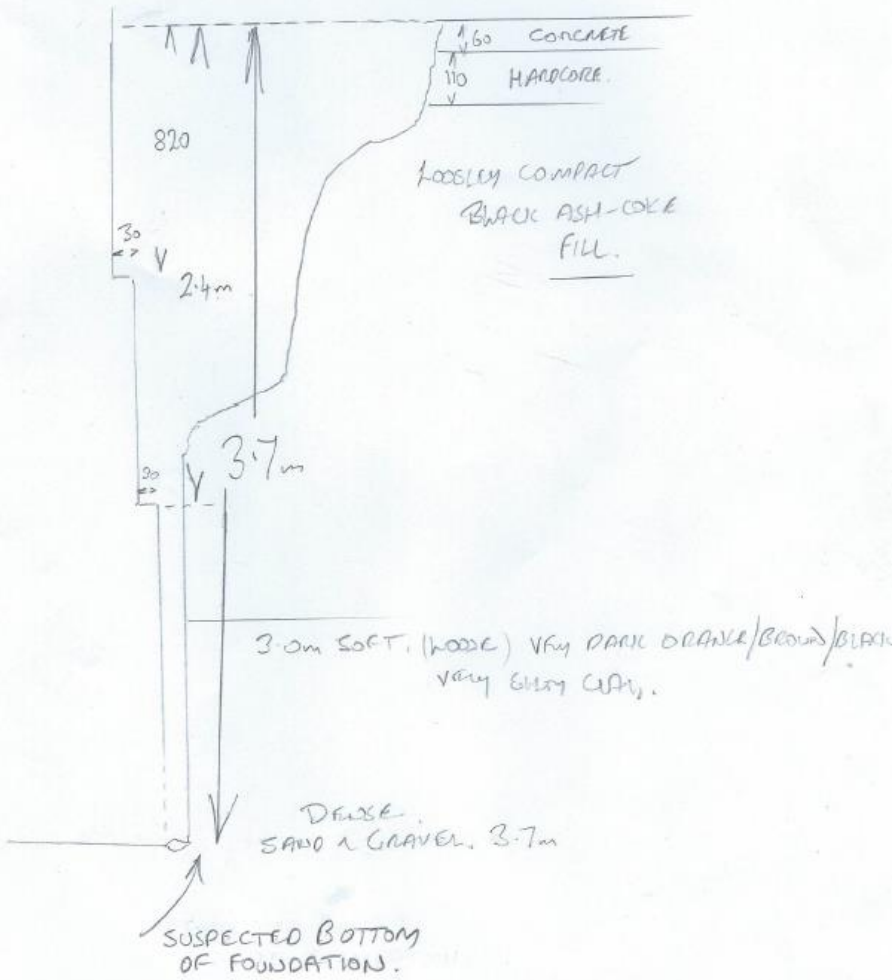 60 CONCRETE
110 HARDCORE.
820
LOOSLEY COMPACT
BLACK ASH-COKE
FILL.
30
2.4m
3.7m
30
3.0m SOFT. (LOOSE) VERY DARK ORANGE/BROWN/BLACK
VERY SILTY CLAY.
DENSE
SAND & GRAVEL. 3.7m
SUSPECTED BOTTOM
OF FOUNDATION.